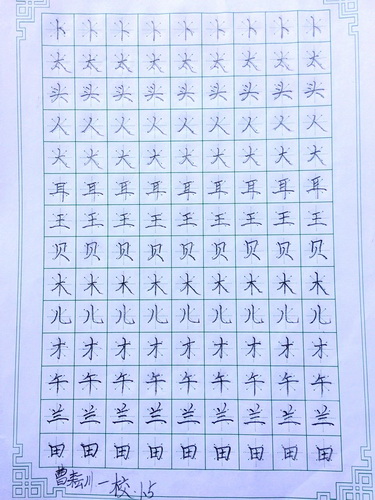 卜卜卜卜卜卜卜卜卜
太太太太太太太太太
头头头头头头头头头
人人人人人人人人人
大大大大大大大大大
耳耳耳耳耳耳耳耳耳
王王王王王王王王王
贝贝贝贝贝贝贝贝贝
木木木木木木木木木
儿儿儿儿儿儿儿儿儿
才才才才才才才才才
午午午午午午午午午
兰兰兰兰兰兰兰兰兰
田田田田田田田田田
曹耘川一校